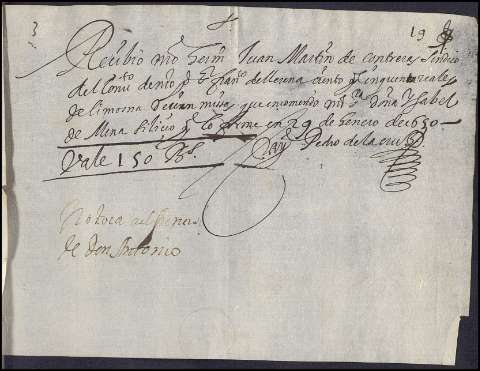 3 19
Recibio nro herm Juan Martin de Contreras Sindico
del Conto de nro Pe San Franco de Llerena ciento y cinquenta reales
de limosna de cien missas que encomendo mi Sa doña Ysabel
de Mena y lo firme en 29 de henero de 1650
Vale 150 Rs. Fray Pedro de la Cruz
No toca al
de don Antonio